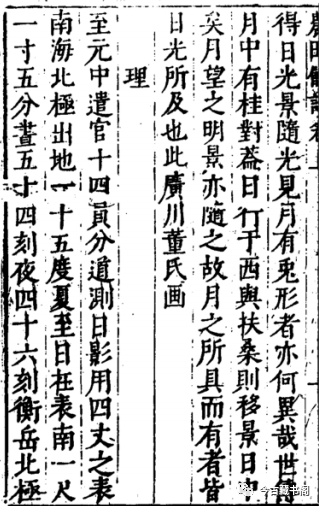 農田餘話卷上
得日光景隨光見月有兎形者亦何異哉世傳
月中有桂對蓋日行于西與扶桑則移景日中
矣月望之明景亦隨之故月之所具而有者皆
日光所及也此廣川董氏画
理
至元中遣官十四員分道測日影用四丈之表
南海北極出地一十五度夏至日在表南一尺
一寸五分晝五十四刻夜四十六刻衡岳北極
今古藏书阁